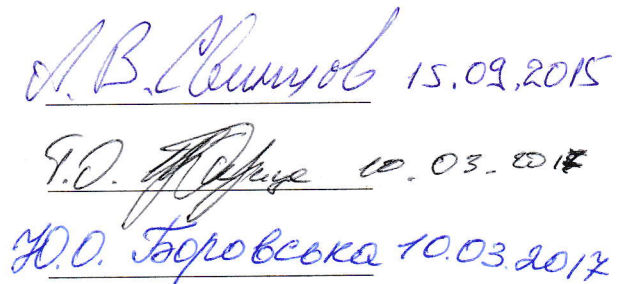 А.В. Свинцов 15.09.2015
Т.О. 10.03.2017
Ю.О. Боровська 10.03.2017